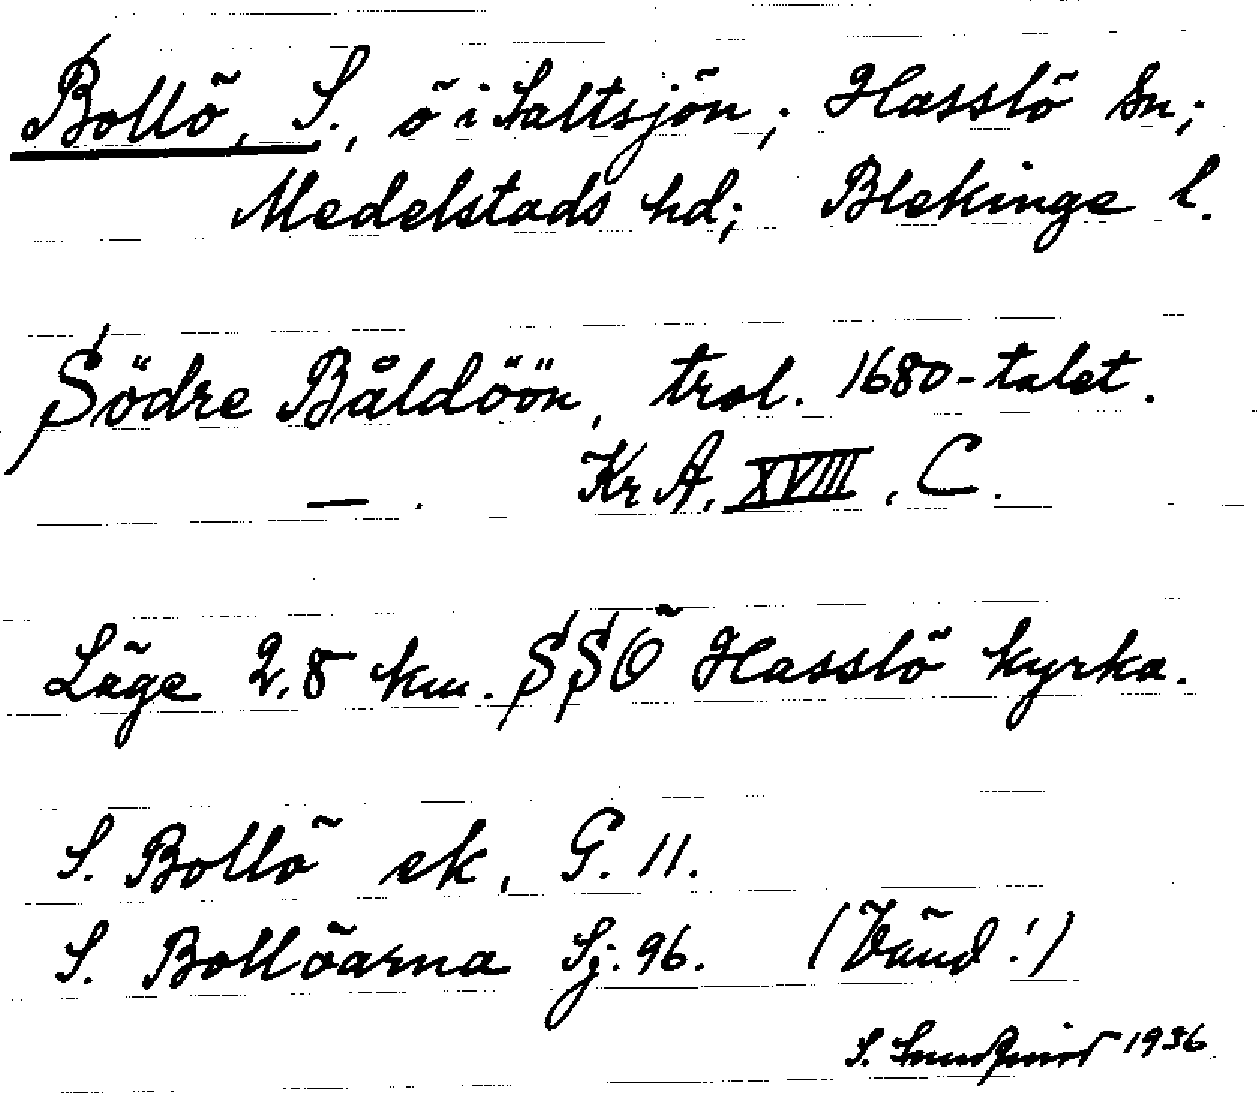 Bollö, S., ö i Saltsjön; Hasslö sn;
Medelstads hd; Blekinge l.
Södre Båldöön, trol. 1680-talet.
— . Kr A, XVIII, C.
Läge 2,8 km. SSÖ Hasslö kyrka.
S. Bollö ek, G. 11.
S. Bollöarna Sj. 96. (Vänd!)
S. 1936